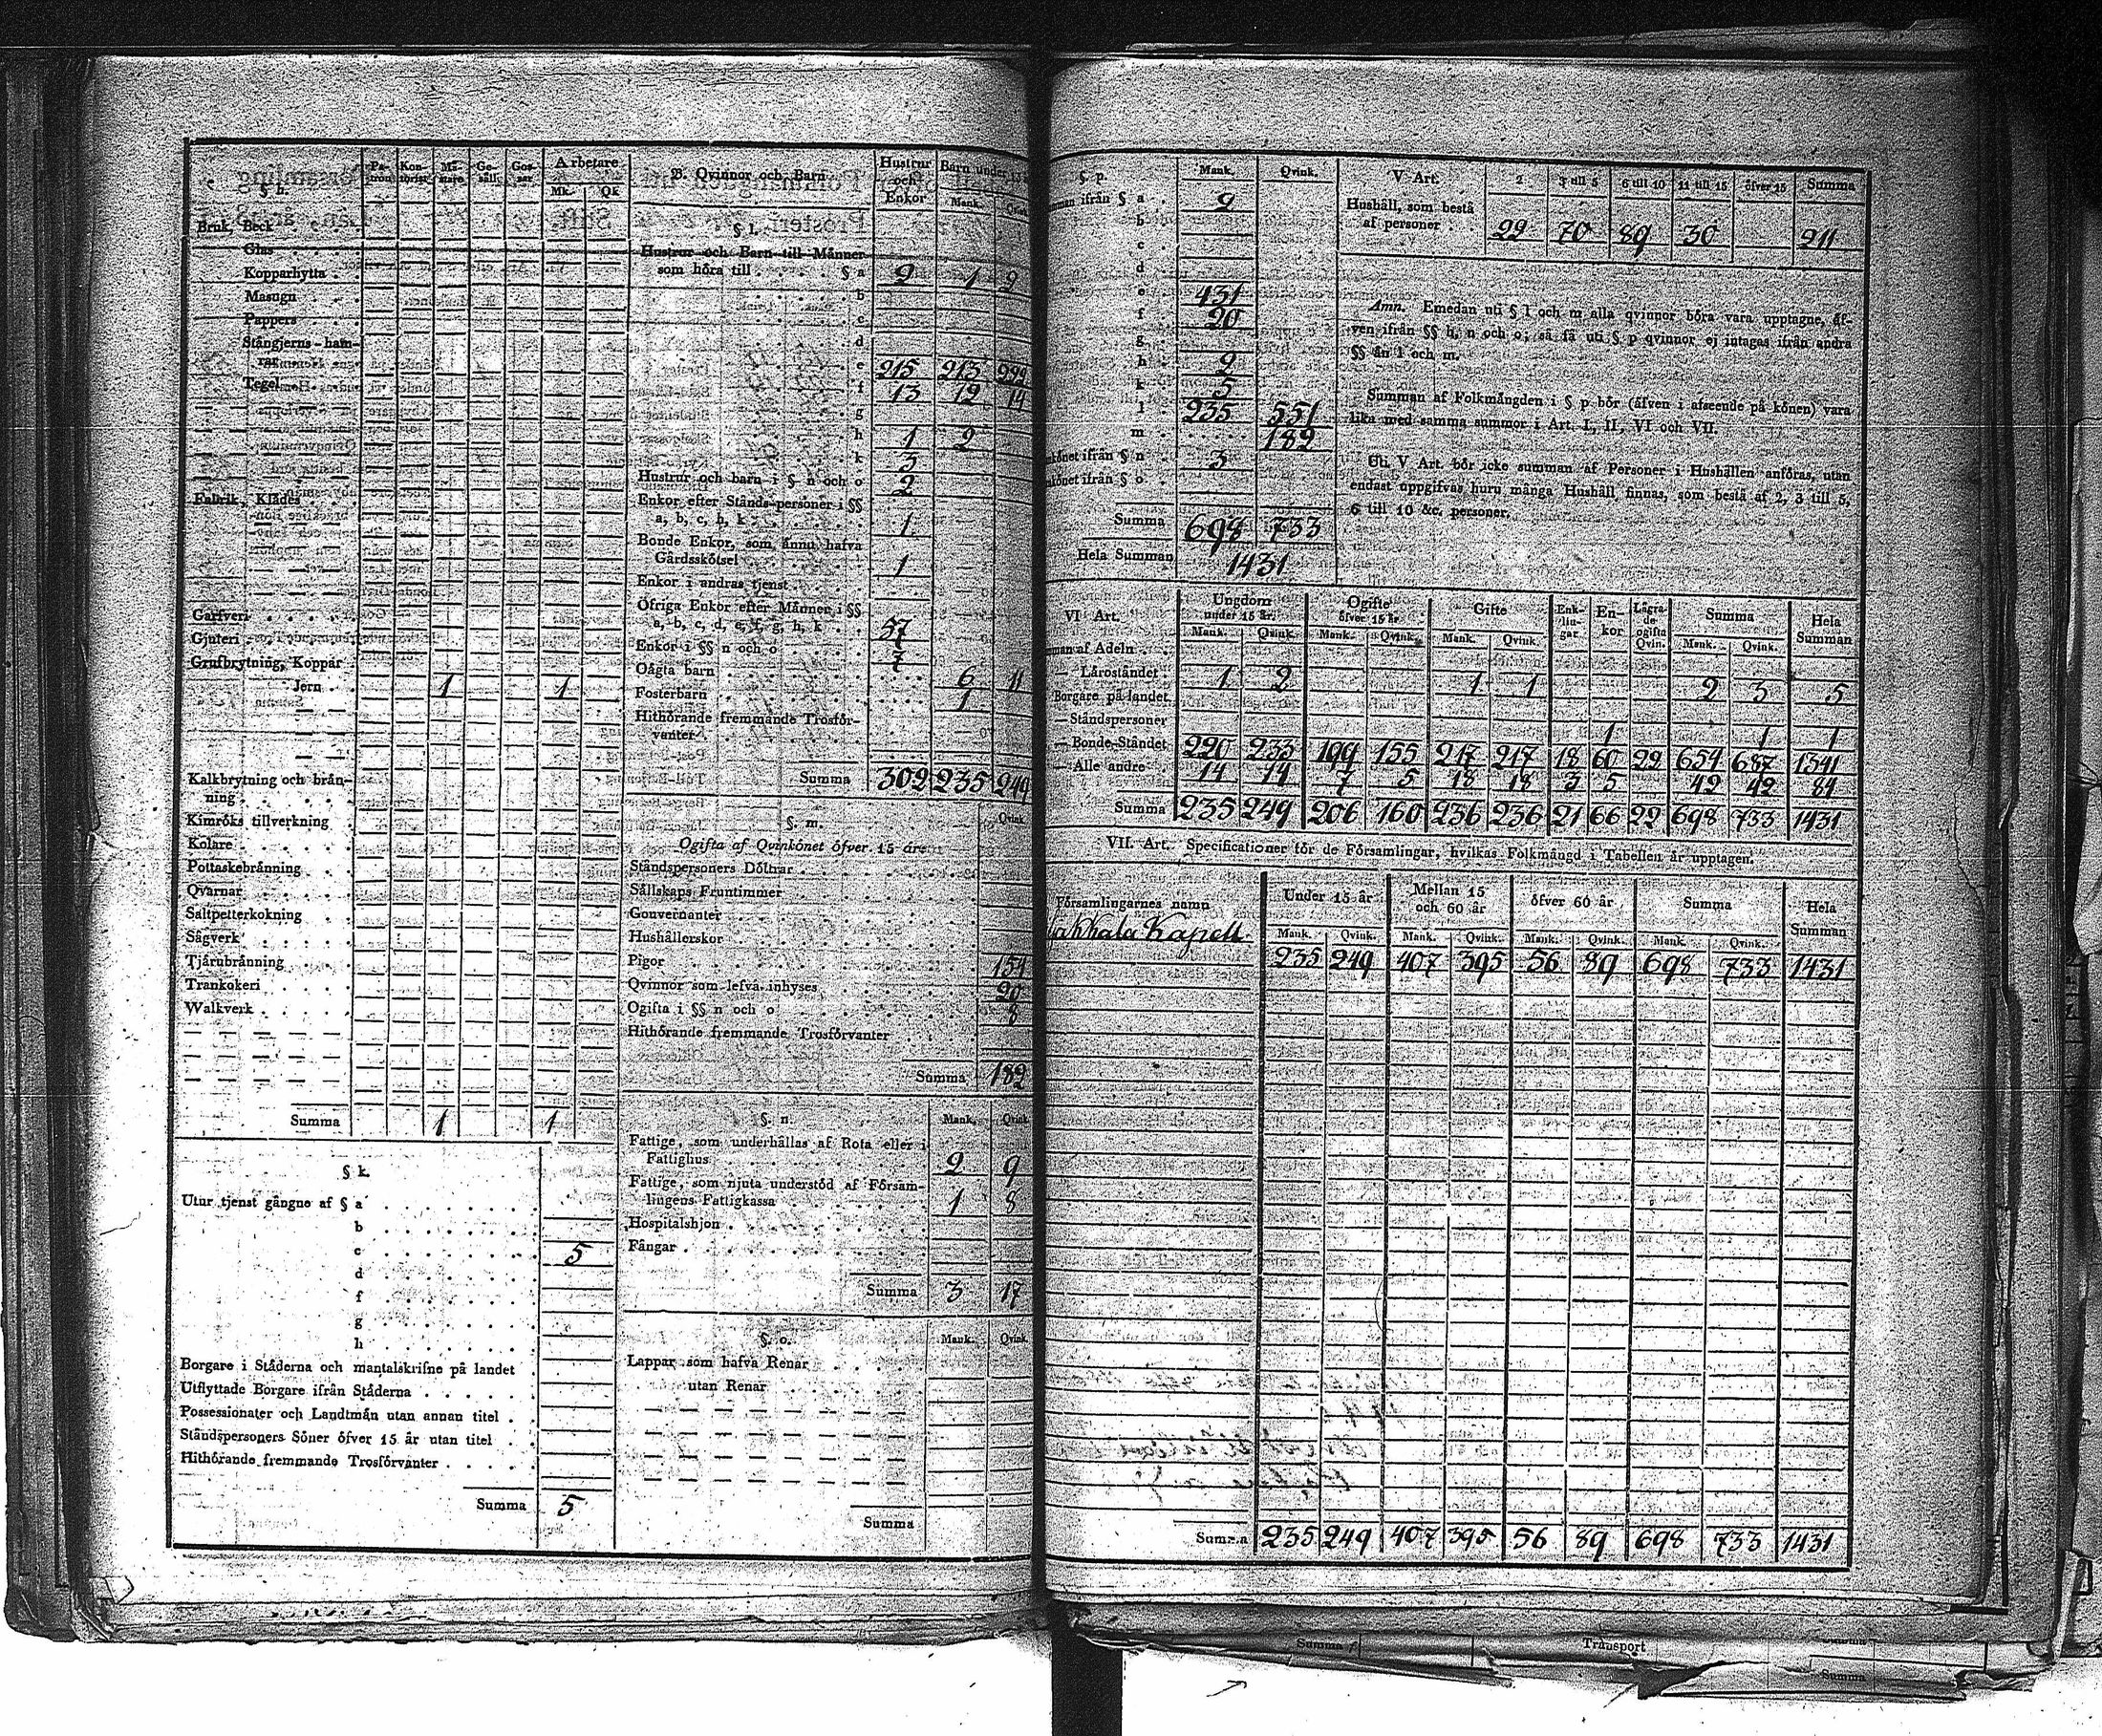 § h. Patron Kontorist Mästare Gesäll Gossar Arbetare
Mk. Qk
Bruk, Beck
Glas
Kopparhytta
Masugn
Pappers
Stångjerns-hamrar
Tegel
Fabrik, Klädes
Garfveri
Gjuteri
Grufbrytning, Koppar
Jern 1 1
Kalkbrytning och brän-
ning
Kimröks tillverkning
Kolare
Pottaskebränning
Qvarnar
Saltpetterkokning
Sågverk
Tjärubränning
Trankokeri
Walkverk
Summa 1 1
§ k.
Utur tjenst gångne af § a
b
c 5
d
f
g
h
Borgare i Städerna och mantalskrifne på landet
Utflyttade Borgare ifrån Städerna
Possessionater och Landtmän utan annan titel
Ståndspersoners Söner öfver 15 år utan titel
Hithörande fremmande Trosförvanter
Summa 5
B. Qvinnor och Barn Hustrur och Enkor Barn under 15
Mank. Qvink
§ l.
Hustrur och Barn till Männer
som höra till § a 2 1 2
b
c
d
e 215 213 222
f 13 12 14
g
h 1 2
k 3
Hustrur och barn i § n och o 2
Enkor efter Stånds-personer i §§
a, b, c, h, k 1
Bonde Enkor, som ännu hafva
Gårdsskötsel 1
Enkor i andras tjenst
Öfriga Enkor efter Männer i §§
a, b, c, d, e, f, g, h, k 57
Enkor i §§ n och o 7
Oägta barn 6 11
Fosterbarn 1
Hithörande fremmande Trosför-
vanter
Summa 302 235 249
§. m. Qvink
Ogifta af Qvinkönet öfver 15 år
Ståndspersoners Döttrar
Sällskaps Fruntimmer
Gouvernanter
Hushållerskor
Pigor 154
Qvinnor som lefva inhyses 20
Ogifta i §§ n och o 8
Hithörande fremmande Trosförvanter
Summa 182
§. n. Mank. Qvink
Fattige, som underhållas af Rota eller i
Fattighus 2 9
Fattige, som njuta understöd af Försam-
lingens Fattigkassa 1 8
Hospitalshjon
Fångar
Summa 3 17
§. o. Mank. Qvink
Lappar som hafva Renar
utan Renar
Summa
§. p. Mank. Qvink.
ifrån § a 2
b
c
d
e 431
f 20
g
h 2
k 5
l 235 551
m 182
könet ifrån § n 3
könet ifrån § o
Summa 698 733
Hela Summan 1431
V Art. 2 3 till 5 6 till 10 11 till 15 öfver 15 Summa
Hushåll, som bestå
af personer 22 70 89 30 211
Anm. Emedan uti § l och m alla qvinnor böra vara upptagne, äf-
ven ifrån §§ h, n och o, så få uti § p qvinnor ej intagas ifrån andra
§§ än l och m.
Summan af Folkmängden i § p bör (äfven i afseende på könen) vara
lika med samma summor i Art. I, II, VI och VII.
Uti V Art. bör icke summan af Personer i Hushållen anföras, utan
endast uppgifvas huru många Hushåll finnas, som bestå af 2, 3 till 5,
6 till 10 &c. personer.
VI Art. Ungdom under 15 år. Ogifte öfver 15 år Gifte Enk-lin-gar En-kor Lägra-de ogifta Qvin. Summa Hela Summan
Mank. Qvink. Mank. Qvink. Mank. Qvink. Mank. Qvink.
af Adeln
— Läroståndet 1 2 1 1 2 3 5
Borgare på landet
— Ståndspersoner 1 1 1
— Bonde-Ståndet 220 233 199 155 217 217 18 60 22 654 687 1341
— Alle andre 14 14 7 5 18 18 3 5 42 42 84
Summa 235 249 206 160 236 236 21 66 22 698 733 1431
VII. Art. Specificationer för de Församlingar, hvilkas Folkmängd i Tabellen är upptagen.
Församlingarnes namn Under 15 år Mellan 15 och 60 år öfver 60 år Summa Hela Summan
Mank. Qvink. Mank. Qvink. Mank. Qvink. Mank. Qvink.
Kapell 235 249 407 395 56 89 698 733 1431
Summa 235 249 407 395 56 89 698 733 1431
Summa Transport
Summa